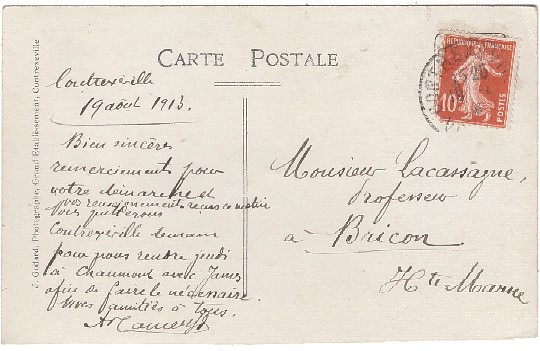 CARTE POSTALE
J. Godard, Photographe, Grand Etablissement, Contrexeville
Contrexéville
19 aout 1913.
Bien sincères
remerciements pour
votre démarche et
vos renseignements recus ce matin
Contrexéville demain
pour nous rendre jeudi
à Chaumont avec James
afin de faire le nécessaire.
Vives amitiés à tous.
REPUBLIQUE FRANÇAISE
10c
POSTES
Monsieur Lacassagne,
Professeur
à Bricon
Hte Marne